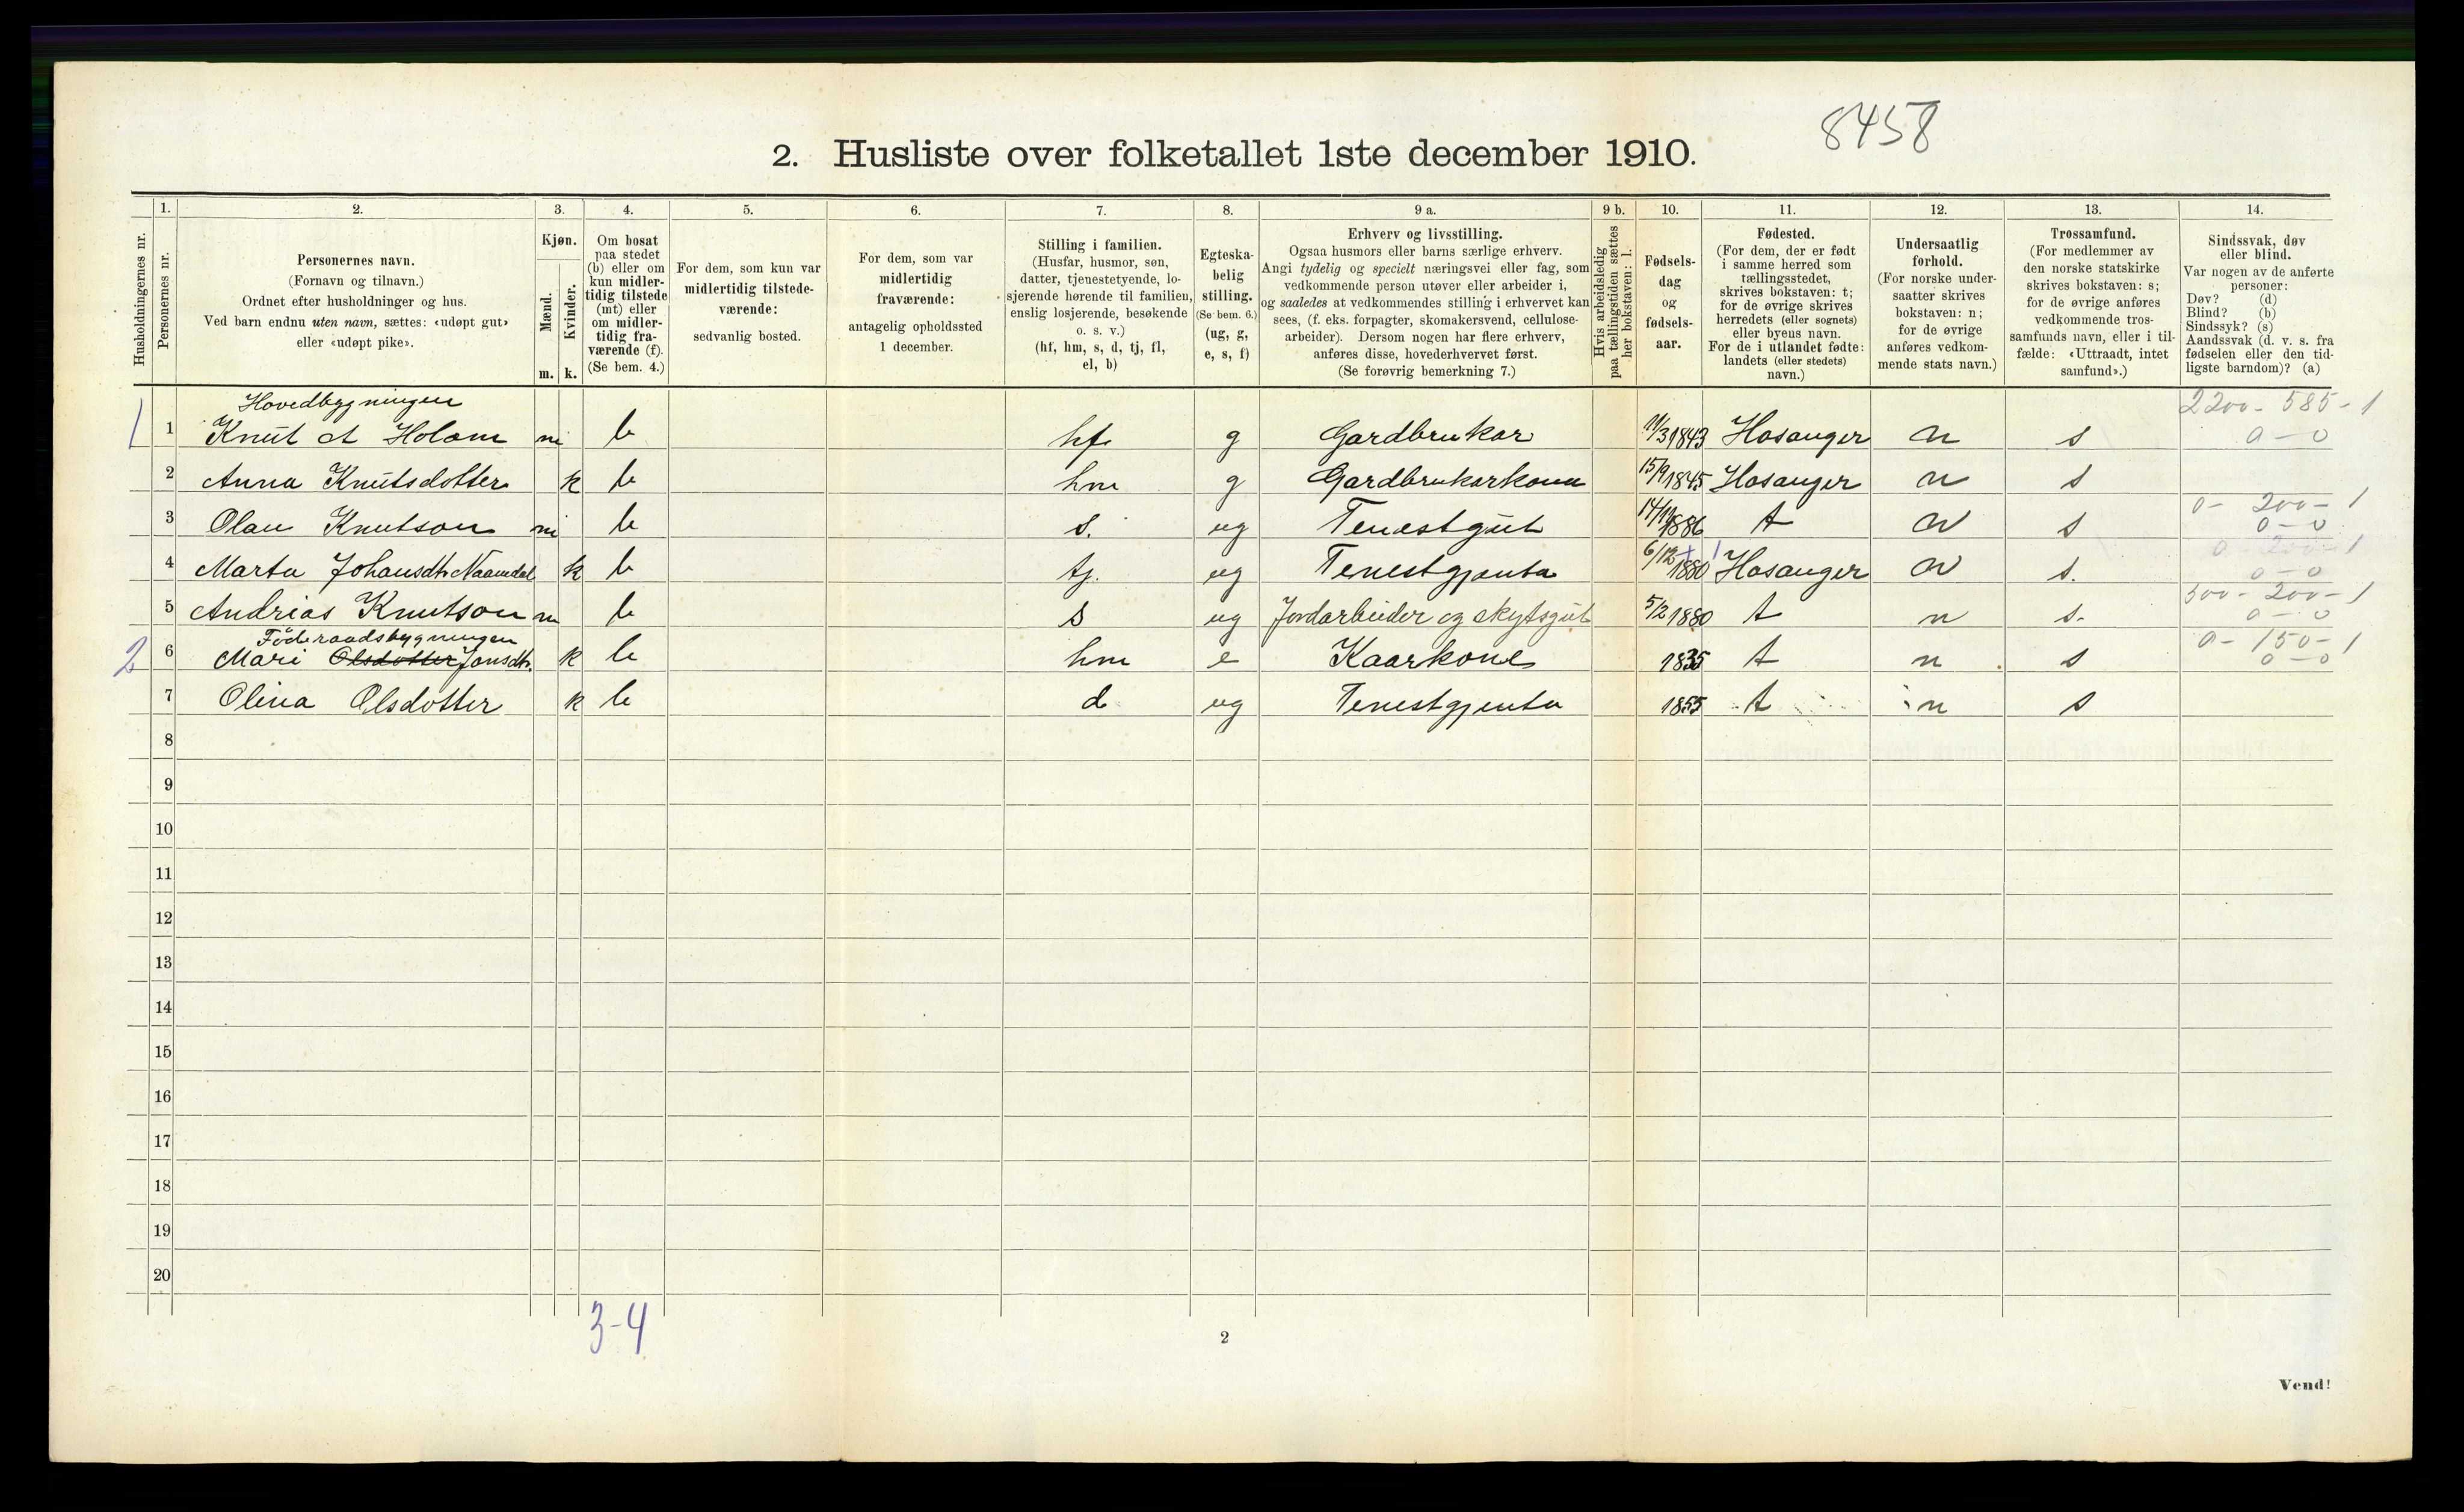 8458
2. Husliste over folketallet 1ste december 1910.
1. 2. 3. 4. 5. 6. 7. 8. 9 a. 9 b. 10. 11. 12. 13. 14.
Husholdningernes nr.
Personernes nr.
Personernes navn.
(Fornavn og tilnavn.)
Ordnet efter husholdninger og hus.
Ved barn endnu uten navn, sættes: «udøpt gut»
eller «udøpt pike».
Kjøn.
Mænd.
Kvinder.
m. k.
Om bosat
paa stedet
(b) eller om
kun midler-
tidig tilstede
(mt) eller
om midler-
tidig fra-
værende (f).
(Se bem. 4.)
For dem, som kun var
midlertidig tilstede-
værende:
sedvanlig bosted.
For dem, som var
midlertidig
fraværende:
antagelig opholdssted
1 december.
Stilling i familien.
(Husfar, husmor, søn,
datter, tjenestetyende, lo-
sjerende hørende til familien,
enslig losjerende, besøkende
o. s. v.)
(hf, hm, s, d, tj, fl,
el, b)
Egteska-
belig
stilling.
(Se bem. 6.)
(ug, g,
e, s, f)
Erhverv og livsstilling.
Ogsaa husmors eller barns særlige erhverv.
Angi tydelig og specielt næringsvei eller fag, som
vedkommende person utøver eller arbeider i,
og saaledes at vedkommendes stilling i erhvervet kan
sees, (f. eks. forpagter, skomakersvend, cellulose-
arbeider). Dersom nogen har flere erhverv,
anføres disse, hovederhvervet først.
(Se forøvrig bemerkning 7.)
Hvis arbeidsledig
paa tællingstiden sættes
her bokstaven: l.
Fødsels-
dag
og
fødsels-
aar.
Fødested.
(For dem, der er født
i samme herred som
tællingsstedet,
skrives bokstaven: t;
for de øvrige skrives
herredets (eller sognets)
eller byens navn.
For de i utlandet fødte:
landets (eller stedets)
navn.)
Undersaatlig
forhold.
(For norske under-
saatter skrives
bokstaven: n;
for de øvrige
anføres vedkom-
mende stats navn.)
Trossamfund.
(For medlemmer av
den norske statskirke
skrives bokstaven: s;
for de øvrige anføres
vedkommende tros-
samfunds navn, eller i til-
fælde: «Uttraadt, intet
samfund».)
Sindssvak, døv
eller blind.
Var nogen av de anførte
personer:
Døv? (d)
Blind? (b)
Sindssyk? (s)
Aandssvak (d. v. s. fra
fødselen eller den tid-
ligste barndom)? (a)
Hovedbygningen 2200 - 585 - 1
1 1 Knut A Holom m b hf g Gardbrukar 11/3 1843 Hosanger n s 0 - 0
2 Anna Knutsdotter k b hm g Gardbrukarkona 15/9 1845 Hosanger n s
0 - 200 - 1
3 Olau Knutson m b s. ug Tenestgut 1886 t n s 0 - 0
0 - 200 - 1
4 Marta Johansdtr. Naamdal k b tj. ug Tenestgjenta 6/12 1880 Hosanger n s. 0 - 0
500 - 200 - 1
5 Andrias Knutson m b s ug Jordarbeider og skytsgut 5/2 1880 t n s. 0 - 0
Föderaadsbygningen 0 - 150 - 1
2 6 Mari Olsdotter Jonsdtr. k b hm e Kaarkone 1835 t n s 0 - 0
7 Olina Olsdotter k b d ug Tenestgjenta 1855 t n s
8
9
10
11
12
13
14
15
16
17
18
19
20
3-4
2
Vend!